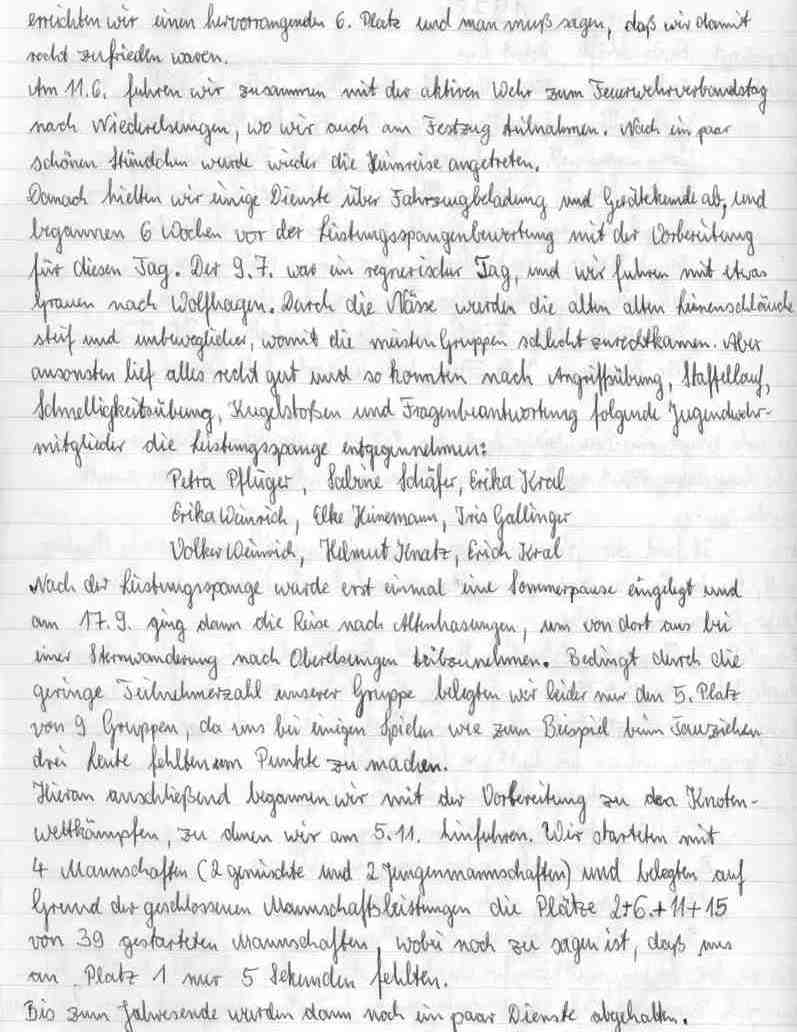 erreichten wir einen hervorrangenden 6. Platz und man muß sagen, daß wir damit
recht zufrieden waren.
Am 11.6. fuhren wir zusammen mit der aktiven Wehr zum Feuerwehrverbandstag
nach Niederelsungen, wo wir auch am Festzug teilnahmen. Nach ein paar
schönen Stündchen wurde wieder die Heimreise angetreten.
Danach hielten wir einige Dienste über Fahrzeugbeladung und Gerätekunde ab, und
begannen 6 Wochen vor der Leistungsspangenbewertung mit der Vorbereitung
für diesen Tag. Der 9.7. war ein regnerischer Tag, und wir fuhren mit etwas
Grauen nach Wolfhagen. Durch die Nässe wurden die alten alten Leinenschläuche
steif und unbeweglicher, womit die meisten Gruppen schlecht zurechtkamen. Aber
ansonsten lief alles recht gut und so konnten nach Angriffsübung, Staffellauf,
Schnelligkeitsübung, Kugelstoßen und Fragenbeantwortung folgende Jugendwehr-
mitglieder die Leistungsspange entgegennehmen:
Petra Pflüger, Sabine Schäfer, Erika Kral
Erika Weinrich, Elke Heinemann, Iris Gallinger
Volker Weinrich, Helmut Knatz, Erich Kral
Nach der Leistungsspange wurde erst einmal eine Sommerpause eingelegt und
am 17.9. ging dann die Reise nach Altenhasungen, um von dort aus bei
einer Sternwanderung nach Oberelsungen teilzunehmen. Bedingt durch die
geringe Teilnehmerzahl unserer Gruppe belegten wir leider nur den 5. Platz
von 9 Gruppen, da uns bei einigen Spielen wie zum Beispiel beim Tauziehen
drei Leute fehlten um Punkte zu machen.
Hieran anschließend begannen wir mit der Vorbereitung zu den Knoten-
wettkämpfen, zu denen wir am 5.11. hinfuhren. Wir starteten mit
4 Mannschaften (2 gemischte und 2 Jungenmannschaften) und belegten auf
Grund der geschlossenen Mannschaftsleistungen die Plätze 2+6.+11+15
von 39 gestarteten Mannschaften, wobei noch zu sagen ist, daß uns
an Platz 1 nur 5 Sekunden fehlten.
Bis zum Jahresende wurden dann noch ein paar Dienste abgehalten.